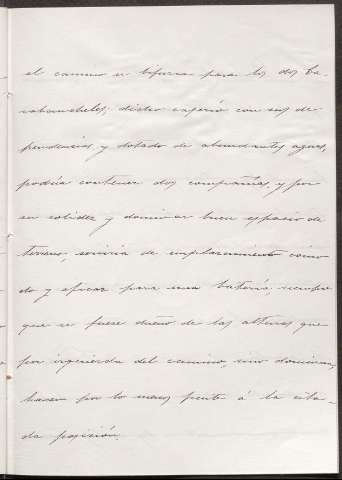 el camino se bifurca para los dos Ca-
rabancheles; dicho caserío con sus de-
pendencias y dotado de abundantes aguas,
podría contener dos compañías, y por
su solidez y dominar buen espacio de
terreno, serviría de emplazamiento cómo-
do y eficaz para una batería, siempre
que se fuese dueño de las alturas que
por izquierda del camino, sino dominan,
hacen por lo menos frente á la cita-
da posición.